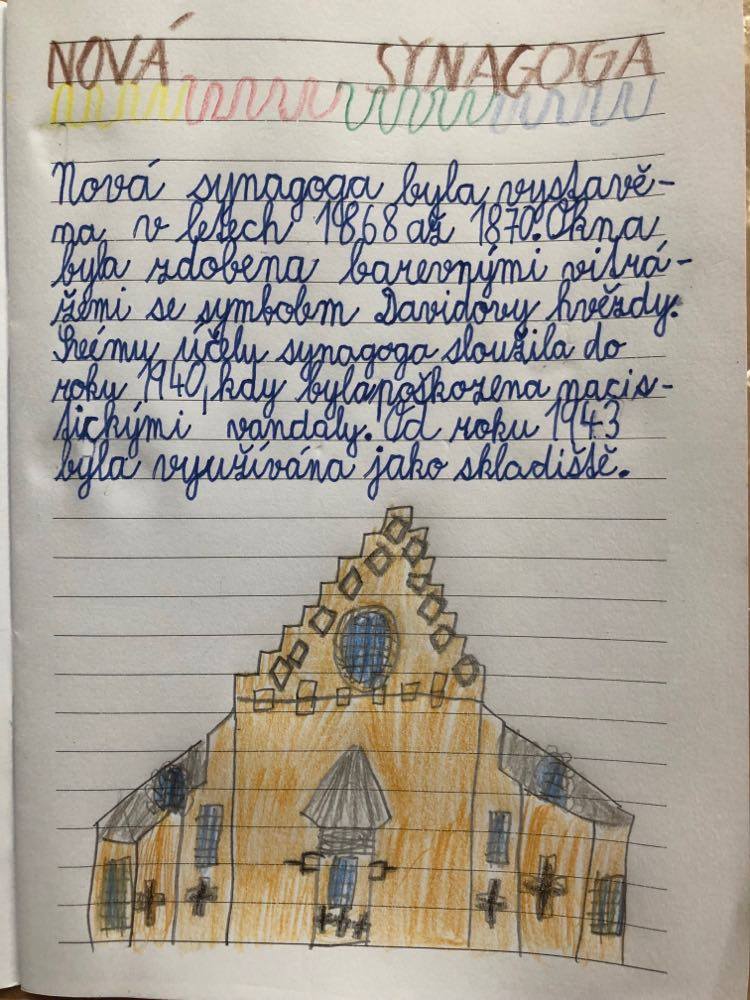 NOVÁ SYNAGOGA
Nová synagoga byla vystavě-
na v letech 1868 až 1870. Okna
byla zdobena barevnými vitrá-
žemi se symbolem Davidovy hvězdy.
Svému účely synagoga sloužila do
roku 1940, kdy byla poškozena nacis-
tickými vandaly. Od roku 1943
byla využívána jako skladiště.